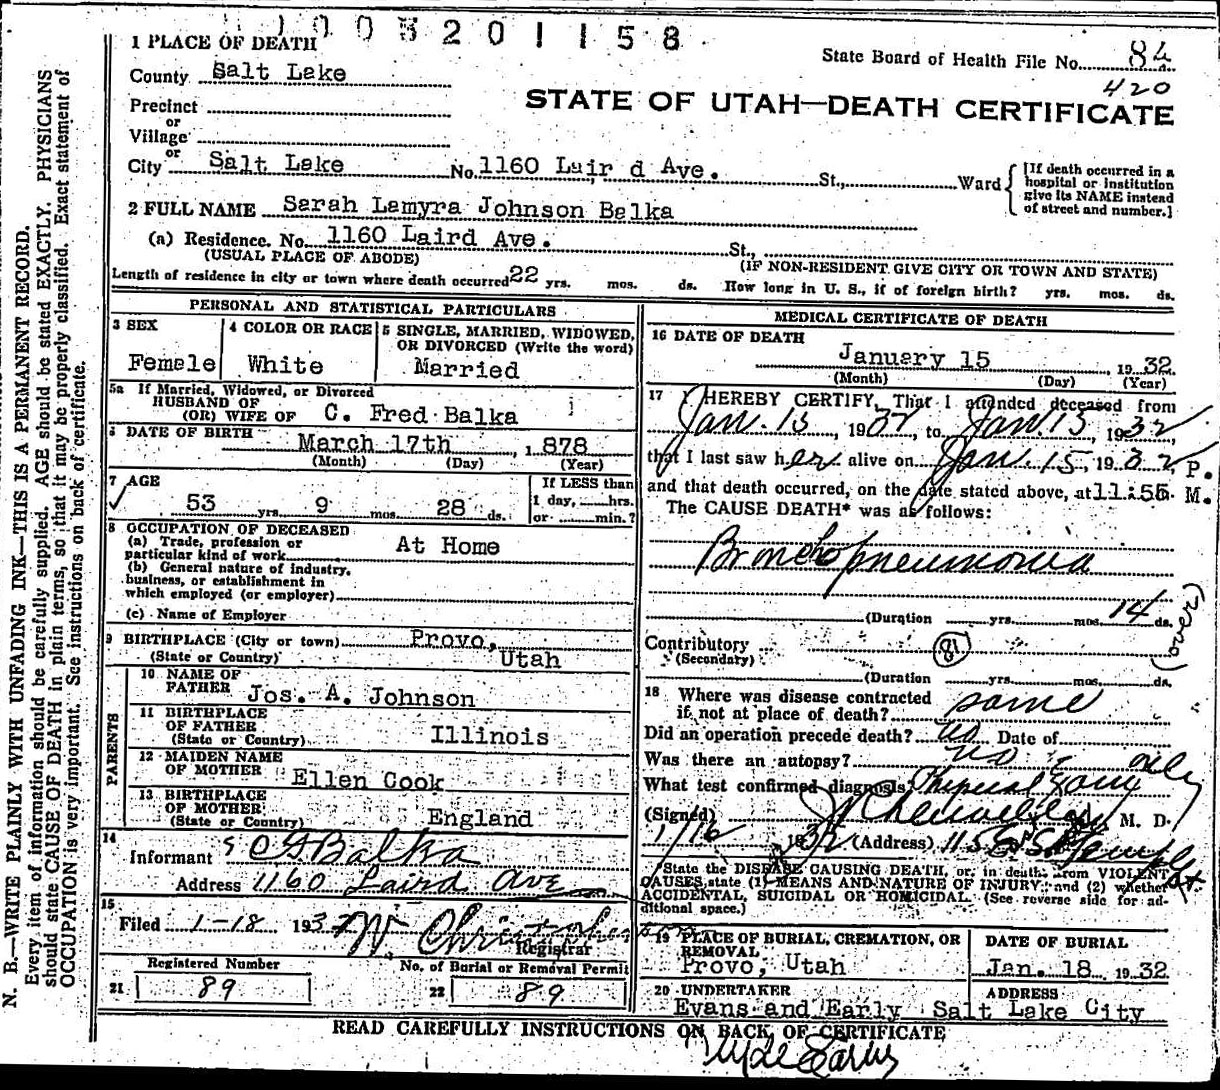 1003201158
State Board of Health File No. 84
420
STATE OF UTAH—DEATH CERTIFICATE
1 PLACE OF DEATH
County Salt Lake
Precinct
or
Village
or
City Salt Lake No. 1160 Lair d Ave. St., Ward
[If death occurred in a
hospital or institution
give its NAME instead
of street and number.]
2 FULL NAME Sarah Lamyra Johnson Balka
(a) Residence. No. 1160 Laird Ave. St.,
(USUAL PLACE OF ABODE) (IF NON-RESIDENT GIVE CITY OR TOWN AND STATE)
Length of residence in city or town where death occurred 22 yrs. mos. ds. How long in U. S., if of foreign birth? yrs. mos. ds.
PERSONAL AND STATISTICAL PARTICULARS
3 SEX
Female
4 COLOR OR RACE
White
5 SINGLE, MARRIED, WIDOWED,
OR DIVORCED (Write the word)
Married
5a If Married, Widowed, or Divorced
HUSBAND OF
(OR) WIFE OF C. Fred Balka
6 DATE OF BIRTH March 17th, 1878
(Month) (Day) (Year)
7 AGE
53 yrs. 9 mos. 28 ds.
If LESS than
1 day, hrs.
or min.?
8 OCCUPATION OF DECEASED
(a) Trade, profession or
particular kind of work At Home
(b) General nature of industry,
business, or establishment in
which employed (or employer)
(c) Name of Employer
9 BIRTHPLACE (City or town) Provo,
(State or Country) Utah
PARENTS
10 NAME OF
FATHER Jos. A. Johnson
11 BIRTHPLACE
OF FATHER
(State or Country) Illinois
12 MAIDEN NAME
OF MOTHER Ellen Cook
13 BIRTHPLACE
OF MOTHER
(State or Country) England
14
Informant C F Balka
Address 1160 Laird Ave
15
Filed 1-18 1932 W Christopherson
Registrar
Registered Number
21 89
No. of Burial or Removal Permit
22 89
MEDICAL CERTIFICATE OF DEATH
16 DATE OF DEATH
January 15, 1932
(Month) (Day) (Year)
17 I HEREBY CERTIFY, That I attended deceased from
Jan. 15, 1932, to Jan. 15, 1932,
that I last saw her alive on Jan. 15, 1932, P.
and that death occurred, on the date stated above, at 11:55 M.
The CAUSE DEATH* was as follows:
Bronchopneumonia
(Duration yrs. mos. 14 ds.
(over)
Contributory
(Secondary)
(Duration yrs. mos. ds.
18 Where was disease contracted
if not at place of death? same
Did an operation precede death? no Date of
Was there an autopsy? no
What test confirmed diagnosis? Physical Exam only
(Signed) M. D.
1/16 1932 (Address) 115 E So Temple St.
*State the DISEASE CAUSING DEATH, or, in death from VIOLENT
CAUSES, state (1) MEANS AND NATURE OF INJURY, and (2) whether
ACCIDENTAL, SUICIDAL OR HOMICIDAL. (See reverse side for ad-
ditional space.)
19 PLACE OF BURIAL, CREMATION, OR
REMOVAL
Provo, Utah
DATE OF BURIAL
Jan. 18 1932
20 UNDERTAKER
Evans and Early
ADDRESS
Salt Lake City
READ CAREFULLY INSTRUCTIONS ON BACK OF CERTIFICATE
N. B.—WRITE PLAINLY WITH UNFADING INK—THIS IS A PERMANENT RECORD.
Every item of information should be carefully supplied. AGE should be stated EXACTLY. PHYSICIANS
should state CAUSE OF DEATH in plain terms, so that it may be properly classified. Exact statement of
OCCUPATION is very important. See instructions on back of certificate.